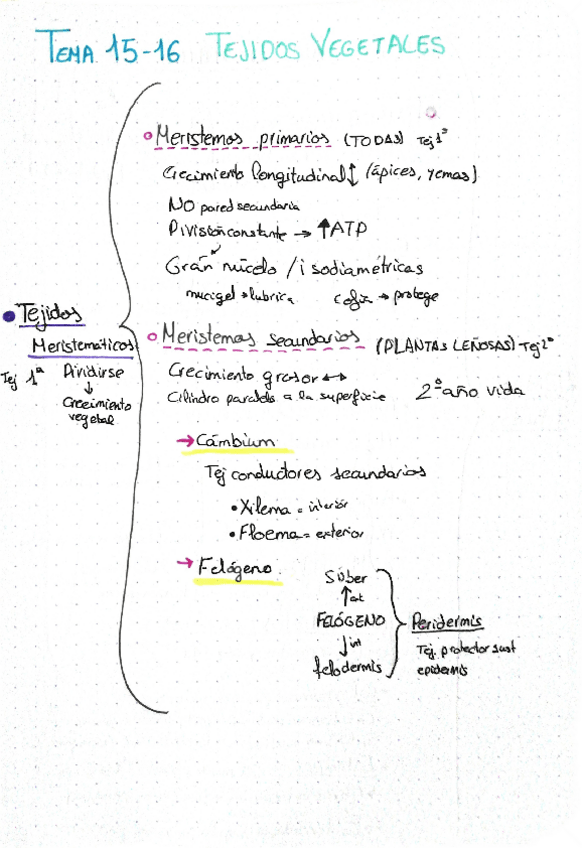 TEMA 15-16 TEJIDOS VEGETALES
Meristemos primarios (TODAS) Tej 1º
Crecimiento longitudinal ↕ (ápices, yemas)
NO pared secundaria
División constante → ↑ATP
Gran núcelo / isodiamétricas
mucigel → lubrica cofia → protege
Tejidos
Meristemáticos
Tej 1ª Dividirse
↓
Crecimiento
vegetal
Meristemos secundarios (PLANTAS LEÑOSAS) → Tej 2º
Crecimiento grosor ↔
Cilindro paralelo a la superficie 2º año vida
→ Cámbium
Tej conductores secundarios
• Xilema = interior
• Floema = exterior
→ Felógeno
Súber
↑ext
FELÓGENO
↓int
felodermis
Peridermis
Tej. protector sust
epidermis